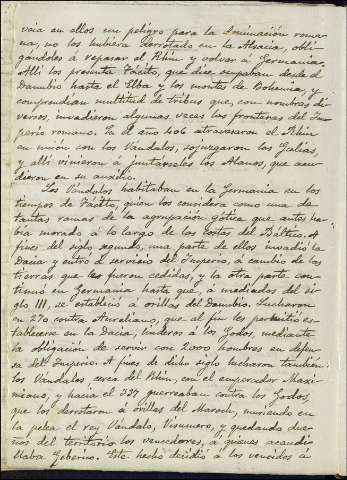 veía en ellos un peligro para la dominación roma-
na, no los hubiera derrotado en la Alsacia, obli-
gándoles á repasar el Rhin y volver á Germania.
Allí los presenta Tácito, que dice ocupaban desde el
Danubio hasta el Elba y los montes de Bohemia, y
comprendían multitud de tribus que, con nombres di-
versos, invadieron algunas veces las fronteras del Im-
perio romano. En el año 406 atravesaron el Rhin
en unión con los Vándalos, sojuzgaron las Galias,
y allí vinieron á juntárseles los Alanos, que acu-
dieron en su auxilio.
Los Vándalos habitaban en la Germania en los
tiempos de Tácito, quien los considera como una de
tantas ramas de la agrupación Gótica que antes ha-
bía morado á lo largo de las costas del Báltico. A
fines del siglo segundo, una parte de ellos invadió la
Dacia y entró á servicio del Imperio, á cambio de las
tierras que les fueron cedidas, y la otra parte con-
tinuó en Germania hasta que, á mediados del si-
glo III, se estableció á orillas del Danubio. Lucharon
en 270 contra Aureliano, que al fin les permitió es-
tablecerse en la Dacia, linderos á los Godos, mediante
la obligación de servir con 2.000 hombres en defen-
sa del Imperio. A fines de dicho siglo lucharon también
los Vándalos cerca del Rhin, con el emperador Maxi-
miano, y hacia el 337 guerreaban contra los Godos,
que los derrotaron á orillas del Marosch, muriendo en
la pelea el rey Vándalo, Visumero, y quedando due-
ños del territorio los vencedores, á quienes acaudi-
llaba Geberico. Este hecho decidió á los vencidos á